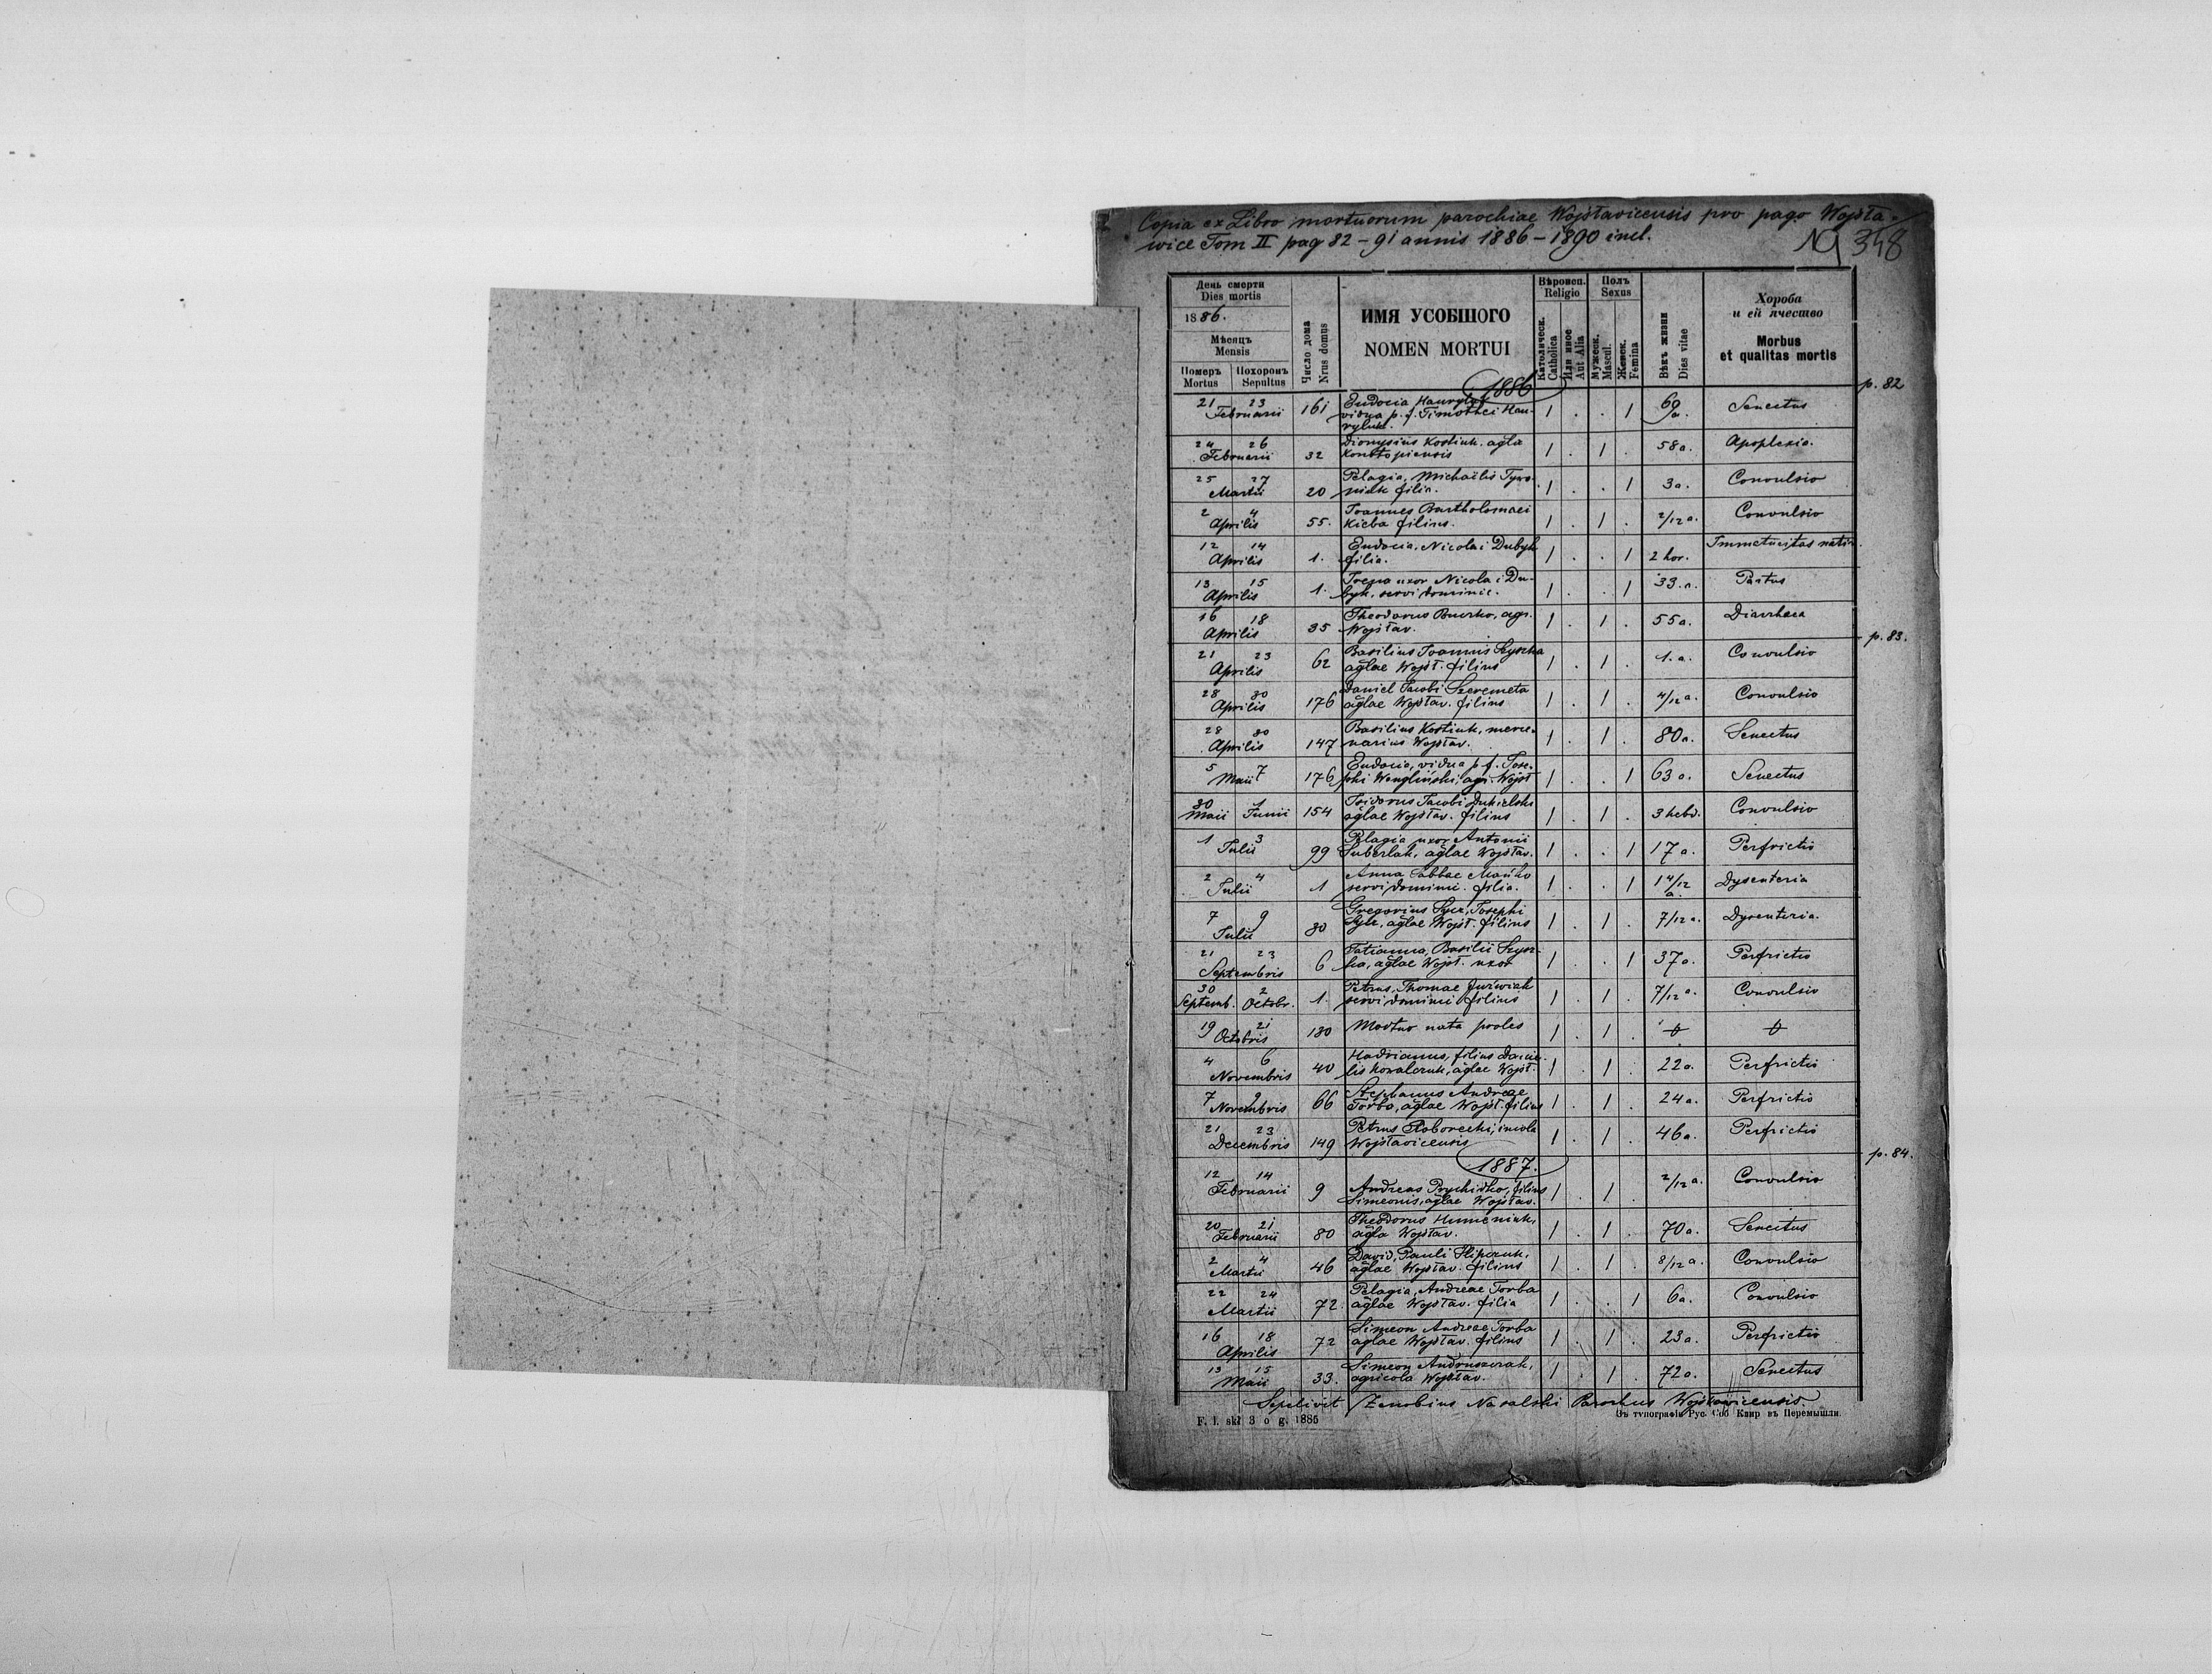 Copia ex Libro mortuorum parochiae Wojsławicensis pro pago Wojsła-
wice Tom II pag 82 – 91 annis 1886 – 1890 incl.
348
День смерти
Dies mortis
1886.
Мѣсяцъ
Mensis
Померъ Похоронъ
Mortus Sepultus
Число дома
Nrus domus
ИМЯ УСОБШОГО
NOMEN MORTUI
Вѣроисп.
Religio
Католическ.
Catholica
Или иное
Aut Alia
Полъ
Sexus
Мужеск.
Mascul.
Женск.
Femina
Вѣкъ жизни
Dies vitae
Хороба
и ей ячество
Morbus
et qualitas mortis
1886
p. 82
21 23 Februarii 161 Eudocia Hawryluk
vidua p. f. Timothei Haw-
ryluk. 1 . . 1 69 a. Senectus
24 26 Februarii 32 Dionysius Kostiuk, agla
1 . 1 . 58 a. Apoplexia.
25 27 Martii 20 Pelagia, Michaëlis
filia. 1 . . 1 3 a. Convulsio
2 4 Aprilis 55. Joannes Bartholomaei
Kieba filius. 1 . 1 . 2/12 a. Convulsio
12 14 Aprilis 1. Eudocia, Nicolai Dubyk
filia. 1 . . 1 2 hor. Immaturitas
13 15 Aprilis 1. uxor Nicolai Du-
byk, servi dominic. 1 . . 1 33. a. Partus
16 18 Aprilis 35 Theodorus agr.
Wojsław. 1 . 1 . 55 a. Diarrhaea
p. 83.
21 23 Aprilis 62 Basilius Joannis
aglae Wojsł. filius 1 . 1 . 1. a. Convulsio
28 30 Aprilis 176 Daniel Jacobi Szeremeta
aglae Wojsław. filius 1 . 1 . 4/12 a. Convulsio
28 30 Aprilis 147 Basilius Kostiuk, merce-
narius Wojsław. 1 . 1 . 80 a. Senectus
5 7 Maii 176 Eudocia, vidua p. f. Jose-
phi Wengliński, agr. Wojsł 1 . . 1 63 a. Senectus
30 Maii 1 Junii 154 Isidorus Jacobi
aglae Wojsław. filius 1 . 1 . 3 hebd. Convulsio
1 3 Julii 99 Pelagia uxor Antonii
Suberlak, aglae Wojsław. 1 . . 1 17 a. Perfrictio
2 4 Julii 1 Anna Sabbae Mańko
servi dominii. filia. 1 . . 1 1 4/12 a. Dysenteria
7 9 Julii 30 Gregorius Josephi
aglae Wojsł. filius 1 . 1 . 7/12 a. Dysenteria.
21 23 Septembris 6 Tatianna, Basilii
aglae Wojsł. uxor 1 . . 1 37 a. Perfrictio
30 Septemb. 2 Octobr. 1. Petrus, Thomae
servi dominii filius 1 . 1 . 7/12 a. Convulsio
19 21 Octobris 130 Mortuo nata proles 1 . 1 .
4 6 Novembris 40 Hadrianus, filius Danie-
lis Kowalczuk, aglae Wojsł. 1 . 1 . 22 a. Perfrictio
7 9 Novembris 66 Stephanus Andreae
Torba, aglae Wojsł. filius 1 . 1 . 24 a. Perfrictio
21 23 Decembris 149 Petrus incola
Wojsławicensis 1 . 1 . 46 a. Perfrictio
1887.
p. 84.
12 14 Februarii 9 Andreas Prychidko, filius
Simeonis, aglae Wojsław. 1 . 1 . 2/12 a. Convulsio
20 21 Februarii 80 Theodorus Humeniuk,
agla Wojsław. 1 . 1 . 70 a. Senectus
2 4 Martii 46 David, Pauli
aglae Wojsław. filius 1 . 1 . 8/12 a. Convulsio
22 24 Martii 72. Pelagia, Andreae Torba
aglae Wojsław. filia 1 . . 1 6 a. Convulsio
16 18 Aprilis 72 Simeon Andreae Torba
aglae Wojsław. filius 1 . 1 . 23 a. Perfrictio
13 15 Maii 33. Simeon
agricola Wojsław. 1 . 1 . 72 a. Senectus
Sepelivit Zenobius Nasalski Parochus Wojsławicensis.
F. i. skł 3 o g. 1885
Въ типографіи Рус. Соб Клир въ Перемышли.